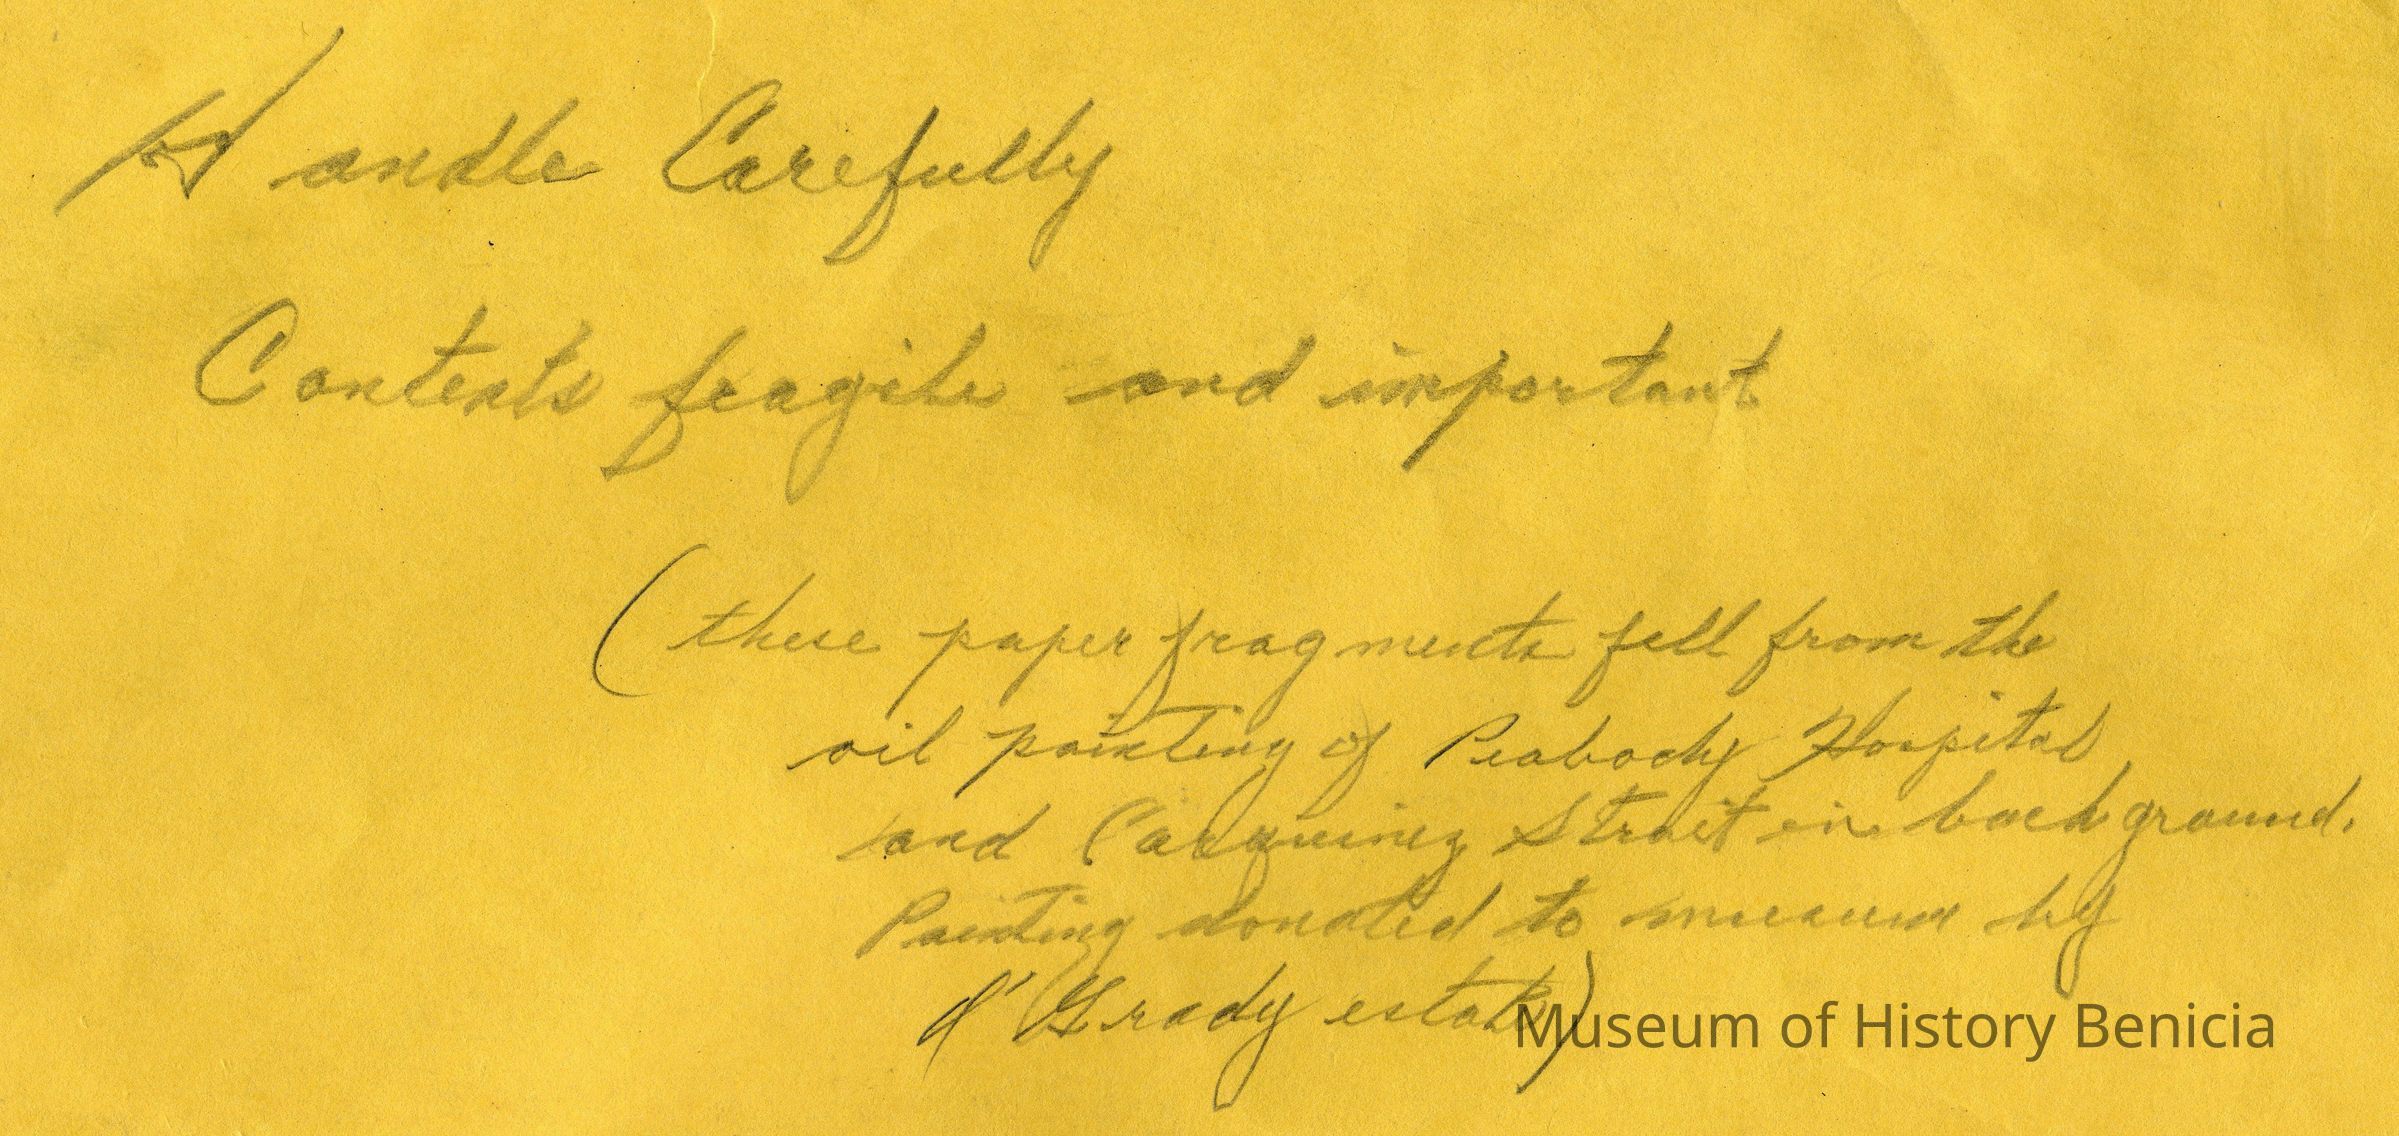 Handle Carefully
Contents fragile and important
(these paper fragments fell from the
oil painting of Peabody Hospital
and Carquinez Strait in background.
Painting donated to museum by
d'Grady estate)
Museum of History Benicia